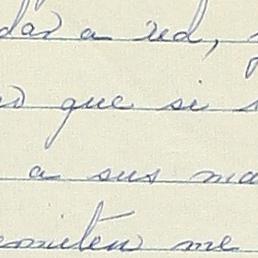 dar a ud,
que si
a sus ma
emiten me